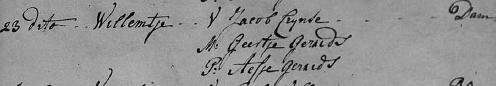 23 dito .. Willemtje .. V Jacob Cynse . . . Dam
M: Geertje Gerrids
P: Aefse Gerrids